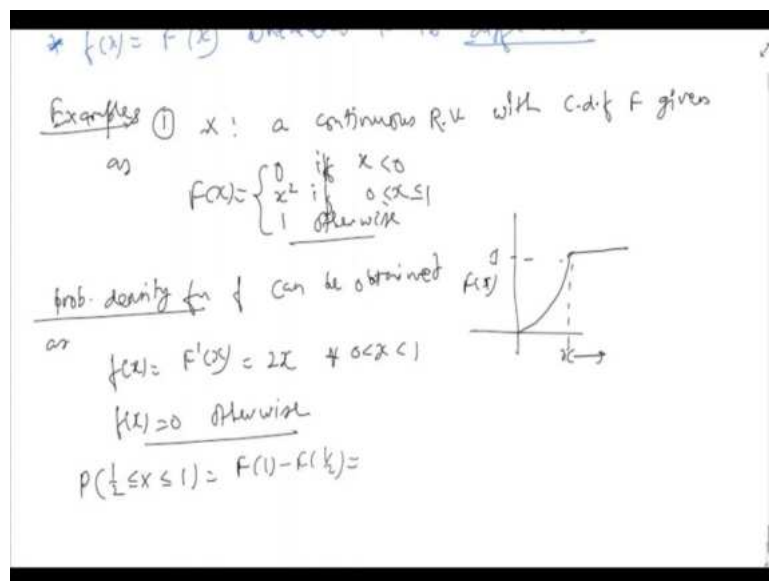 * f(x) = F'(x)
Examples ① X : a continuous R.V with c.d.f F given
as
F(x) = { 0 if x < 0
x² if 0 < x ≤ 1
1 otherwise
prob. density fn f can be obtained
as
f(x) = F'(x) = 2x ∀ 0<x<1
f(x) = 0 otherwise
P(½ ≤ X ≤ 1) = F(1) - F(½) =
1
F(x)
x →